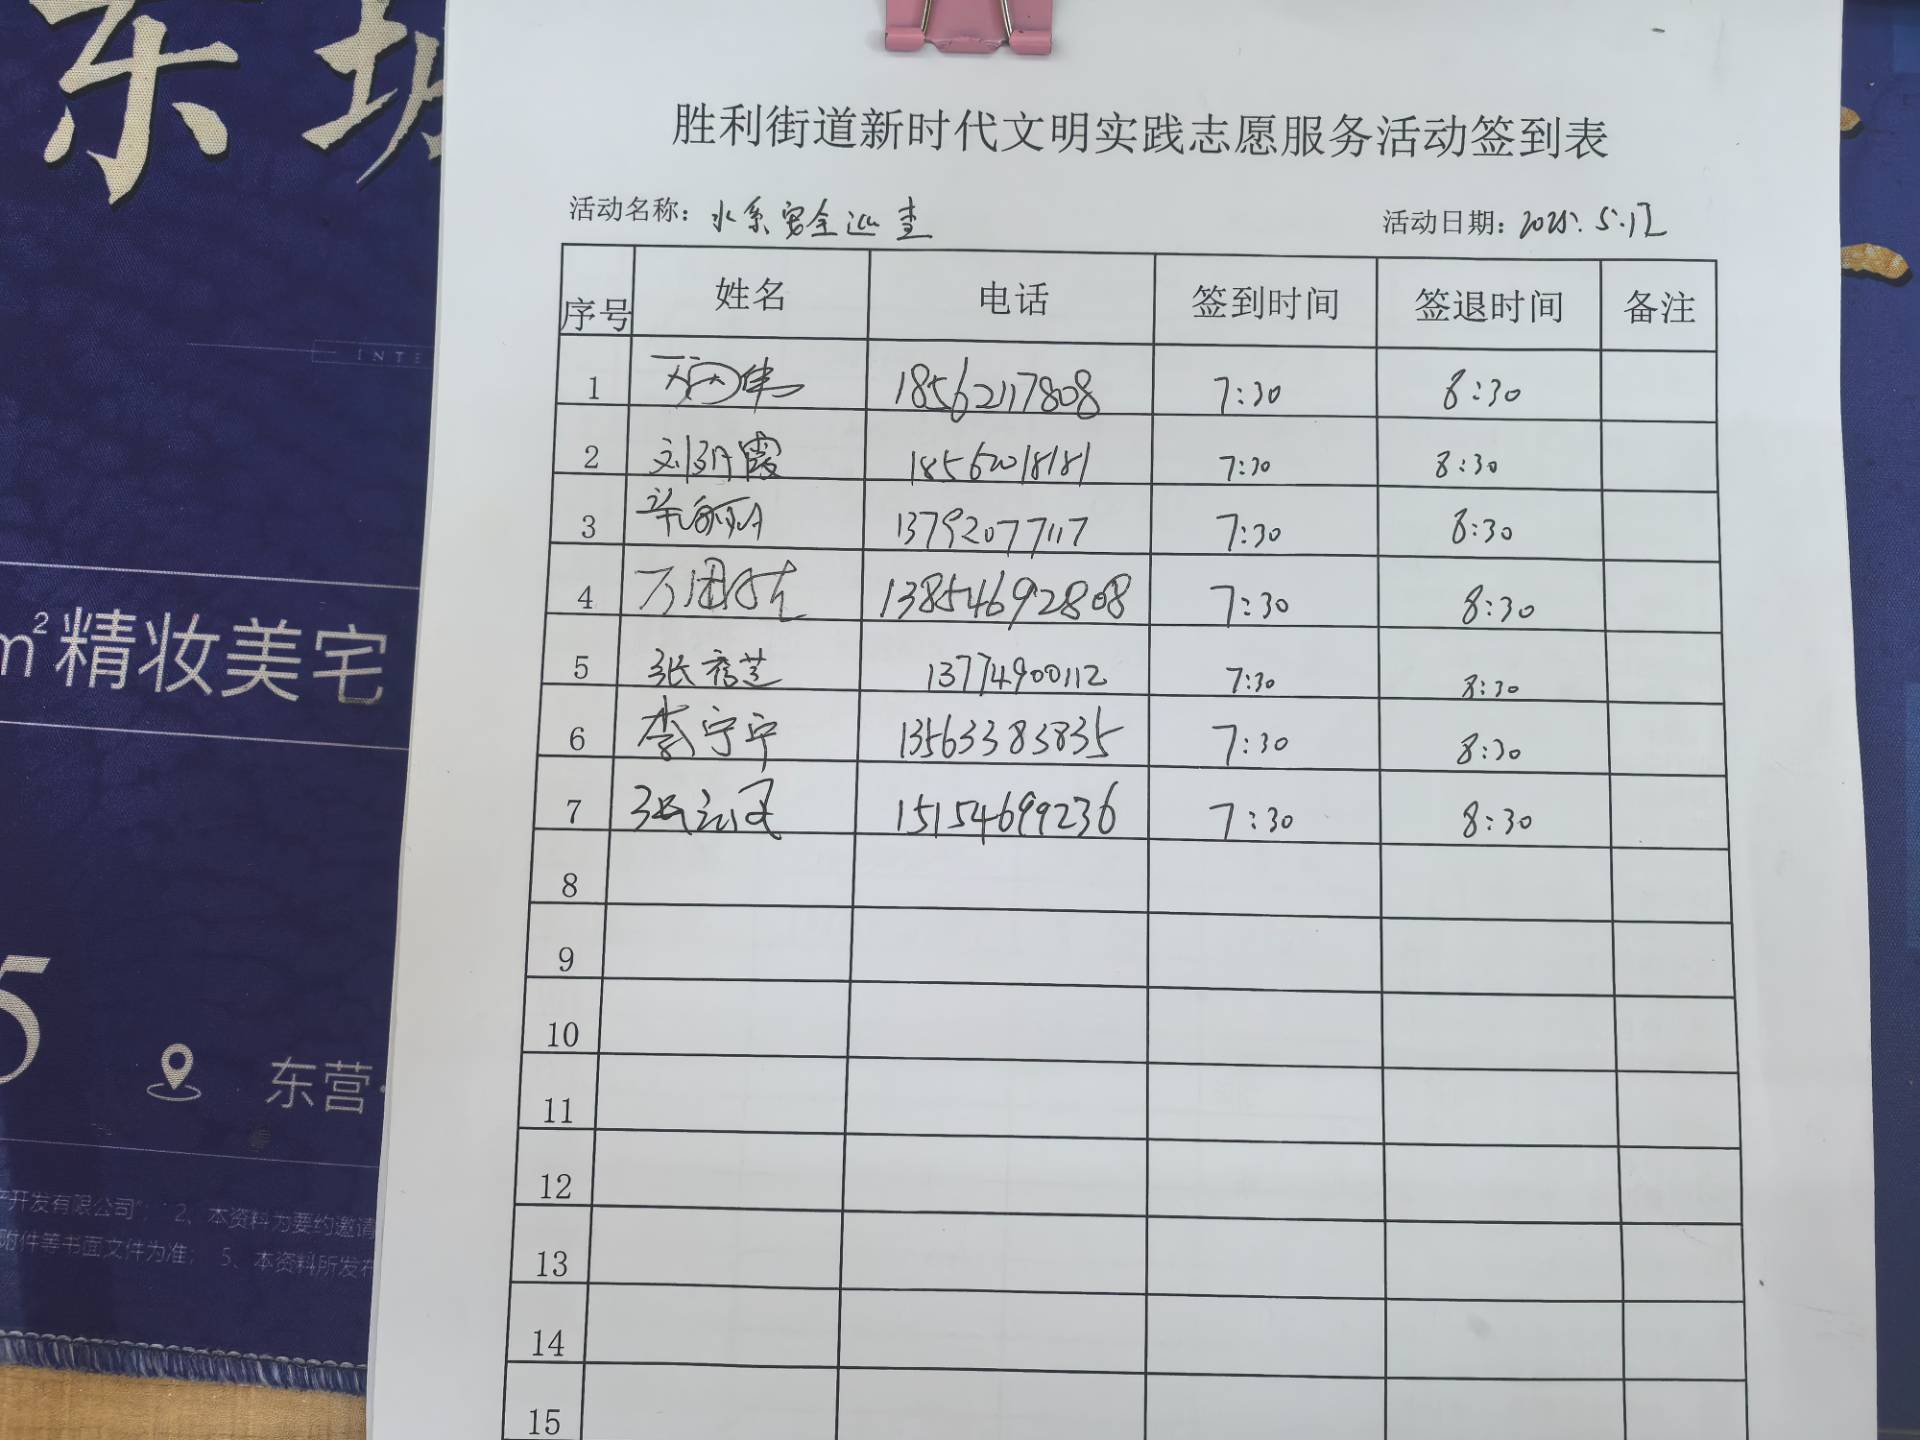 东城
INTE
m²精妆美宅
5
东营·
产开发有限公司"; 2、本资料为要约邀请
附件等书面文件为准; 5、本资料所发布
胜利街道新时代文明实践志愿服务活动签到表
活动名称: 水系安全巡查 活动日期: 2025.5.17
序号 姓名 电话 签到时间 签退时间 备注
1 18562117808 7:30 8:30
2 刘丽霞 18562018181 7:30 8:30
3 13792077117 7:30 8:30
4 13854692808 7:30 8:30
5 张秀芝 13774900112 7:30 8:30
6 李宁宁 13563383835 7:30 8:30
7 张 15154699236 7:30 8:30
8
9
10
11
12
13
14
15